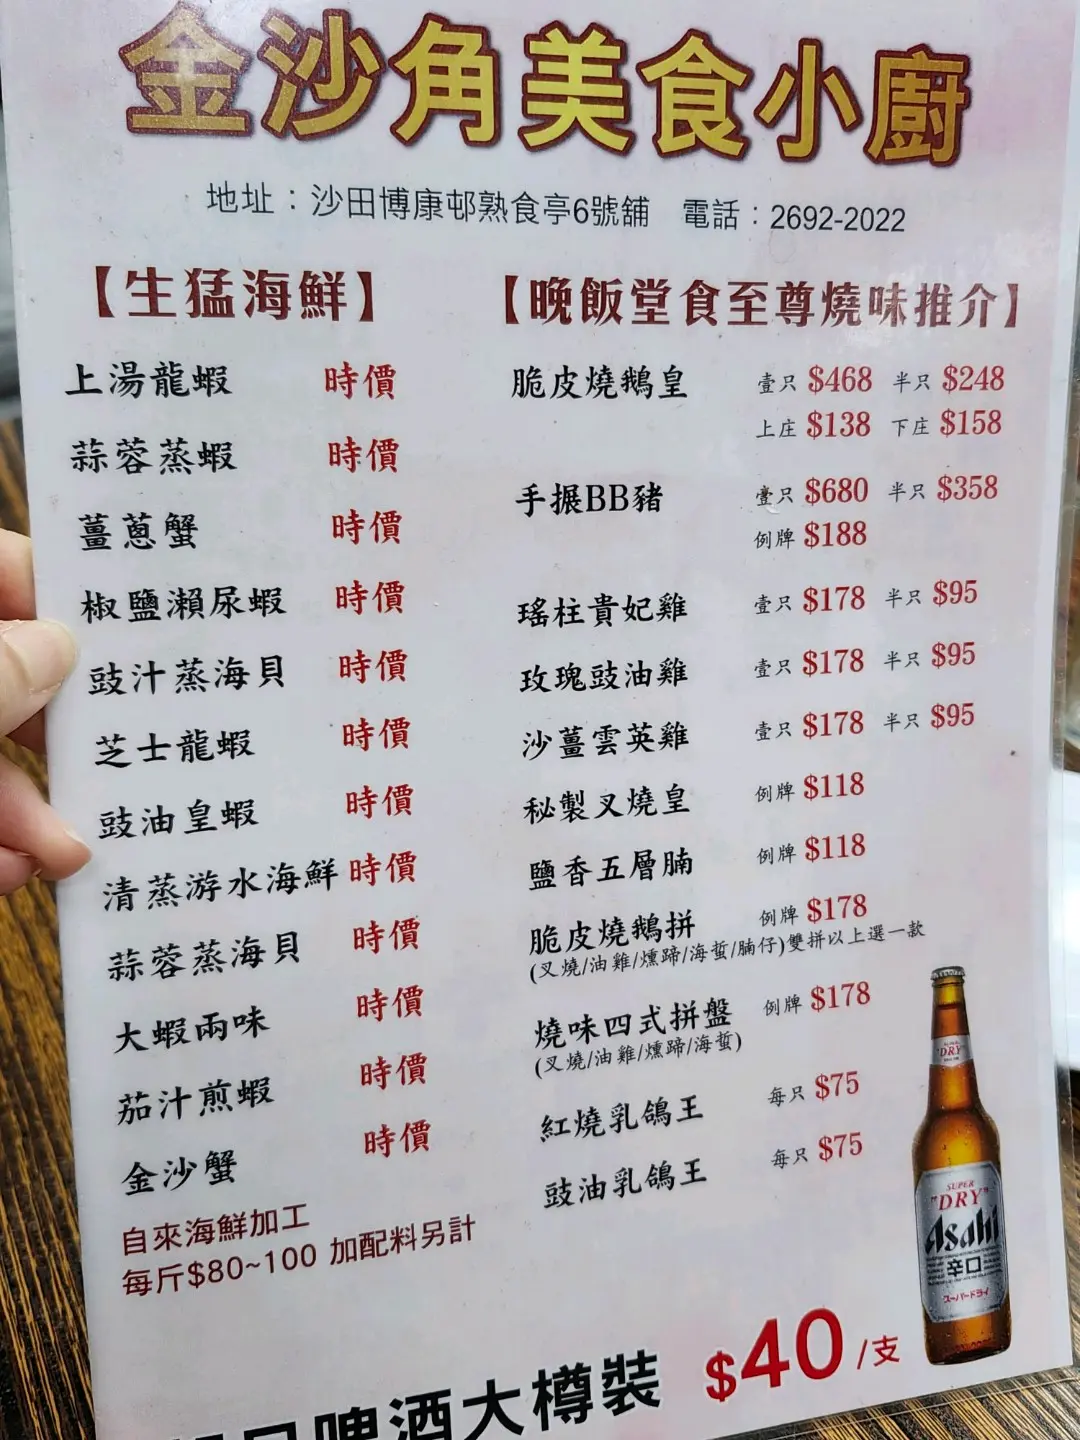 金沙角美食小廚
地址：沙田博康邨熟食亭6號舖 電話：2692-2022
【生猛海鮮】
上湯龍蝦 時價
蒜蓉蒸蝦 時價
薑蔥蟹 時價
椒鹽瀨尿蝦 時價
豉汁蒸海貝 時價
芝士龍蝦 時價
豉油皇蝦 時價
清蒸游水海鮮 時價
蒜蓉蒸海貝 時價
大蝦兩味 時價
茄汁煎蝦 時價
金沙蟹 時價
自來海鮮加工
每斤$80~100 加配料另計
【晚飯堂食至尊燒味推介】
脆皮燒鵝皇 壹只 $468 半只 $248
上庄 $138 下庄 $158
手搌BB豬 壹只 $680 半只 $358
例牌 $188
瑤柱貴妃雞 壹只 $178 半只 $95
玫瑰豉油雞 壹只 $178 半只 $95
沙薑雲英雞 壹只 $178 半只 $95
秘製叉燒皇 例牌 $118
鹽香五層腩 例牌 $118
脆皮燒鵝拼 例牌 $178
(叉燒/油雞/燻蹄/海蜇/腩仔)雙拼以上選一款
燒味四式拼盤 例牌 $178
(叉燒/油雞/燻蹄/海蜇)
紅燒乳鴿王 每只 $75
豉油乳鴿王 每只 $75
SUPER
"DRY"
SUPER
"DRY"
Asahi
辛口
スーパードライ
啤酒大樽裝 $40/支